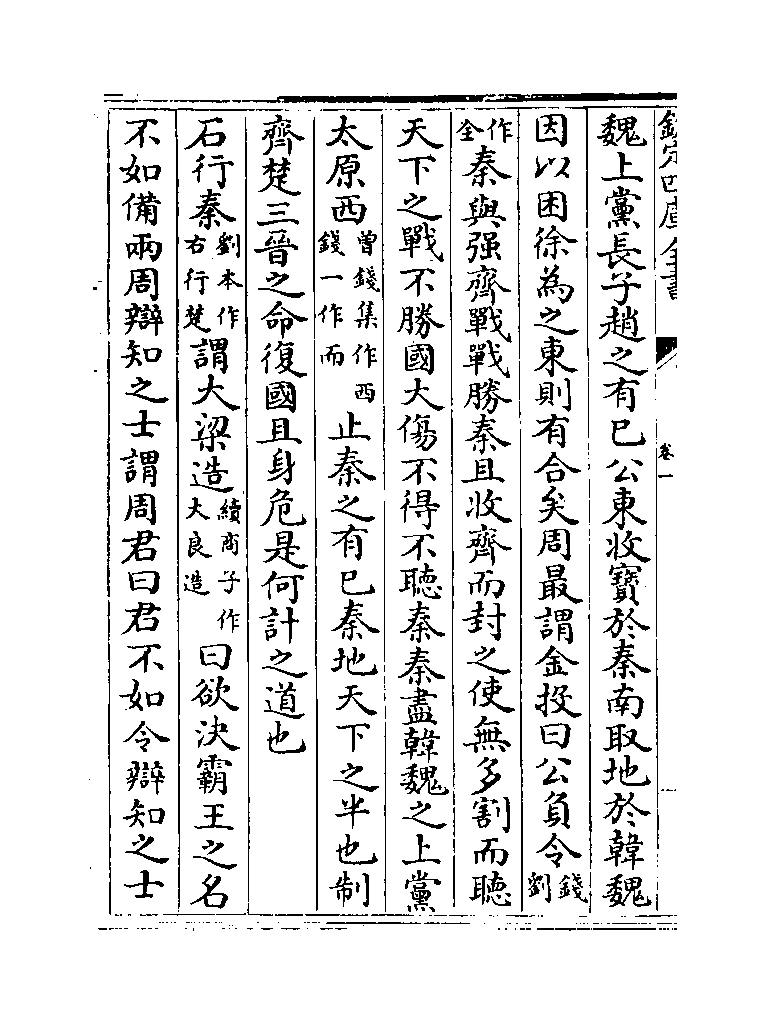 欽定四庫全書
卷一
魏上黨長子趙之有已公東收寶於秦南取地於韓魏
因以困徐為之東則有合矣周最謂金投曰公負令錢劉
作全秦與强齊戰戰勝秦且收齊而封之使無多割而聽
天下之戰不勝國大傷不得不聽秦秦盡韓魏之上黨
太原西曾錢集作西錢一作而止秦之有已秦地天下之半也制
齊楚三晉之命復國且身危是何計之道也
石行秦劉本作右行楚謂大梁造續商子作大良造曰欲決霸王之名
不如備兩周辯知之士謂周君曰君不如令辯知之士